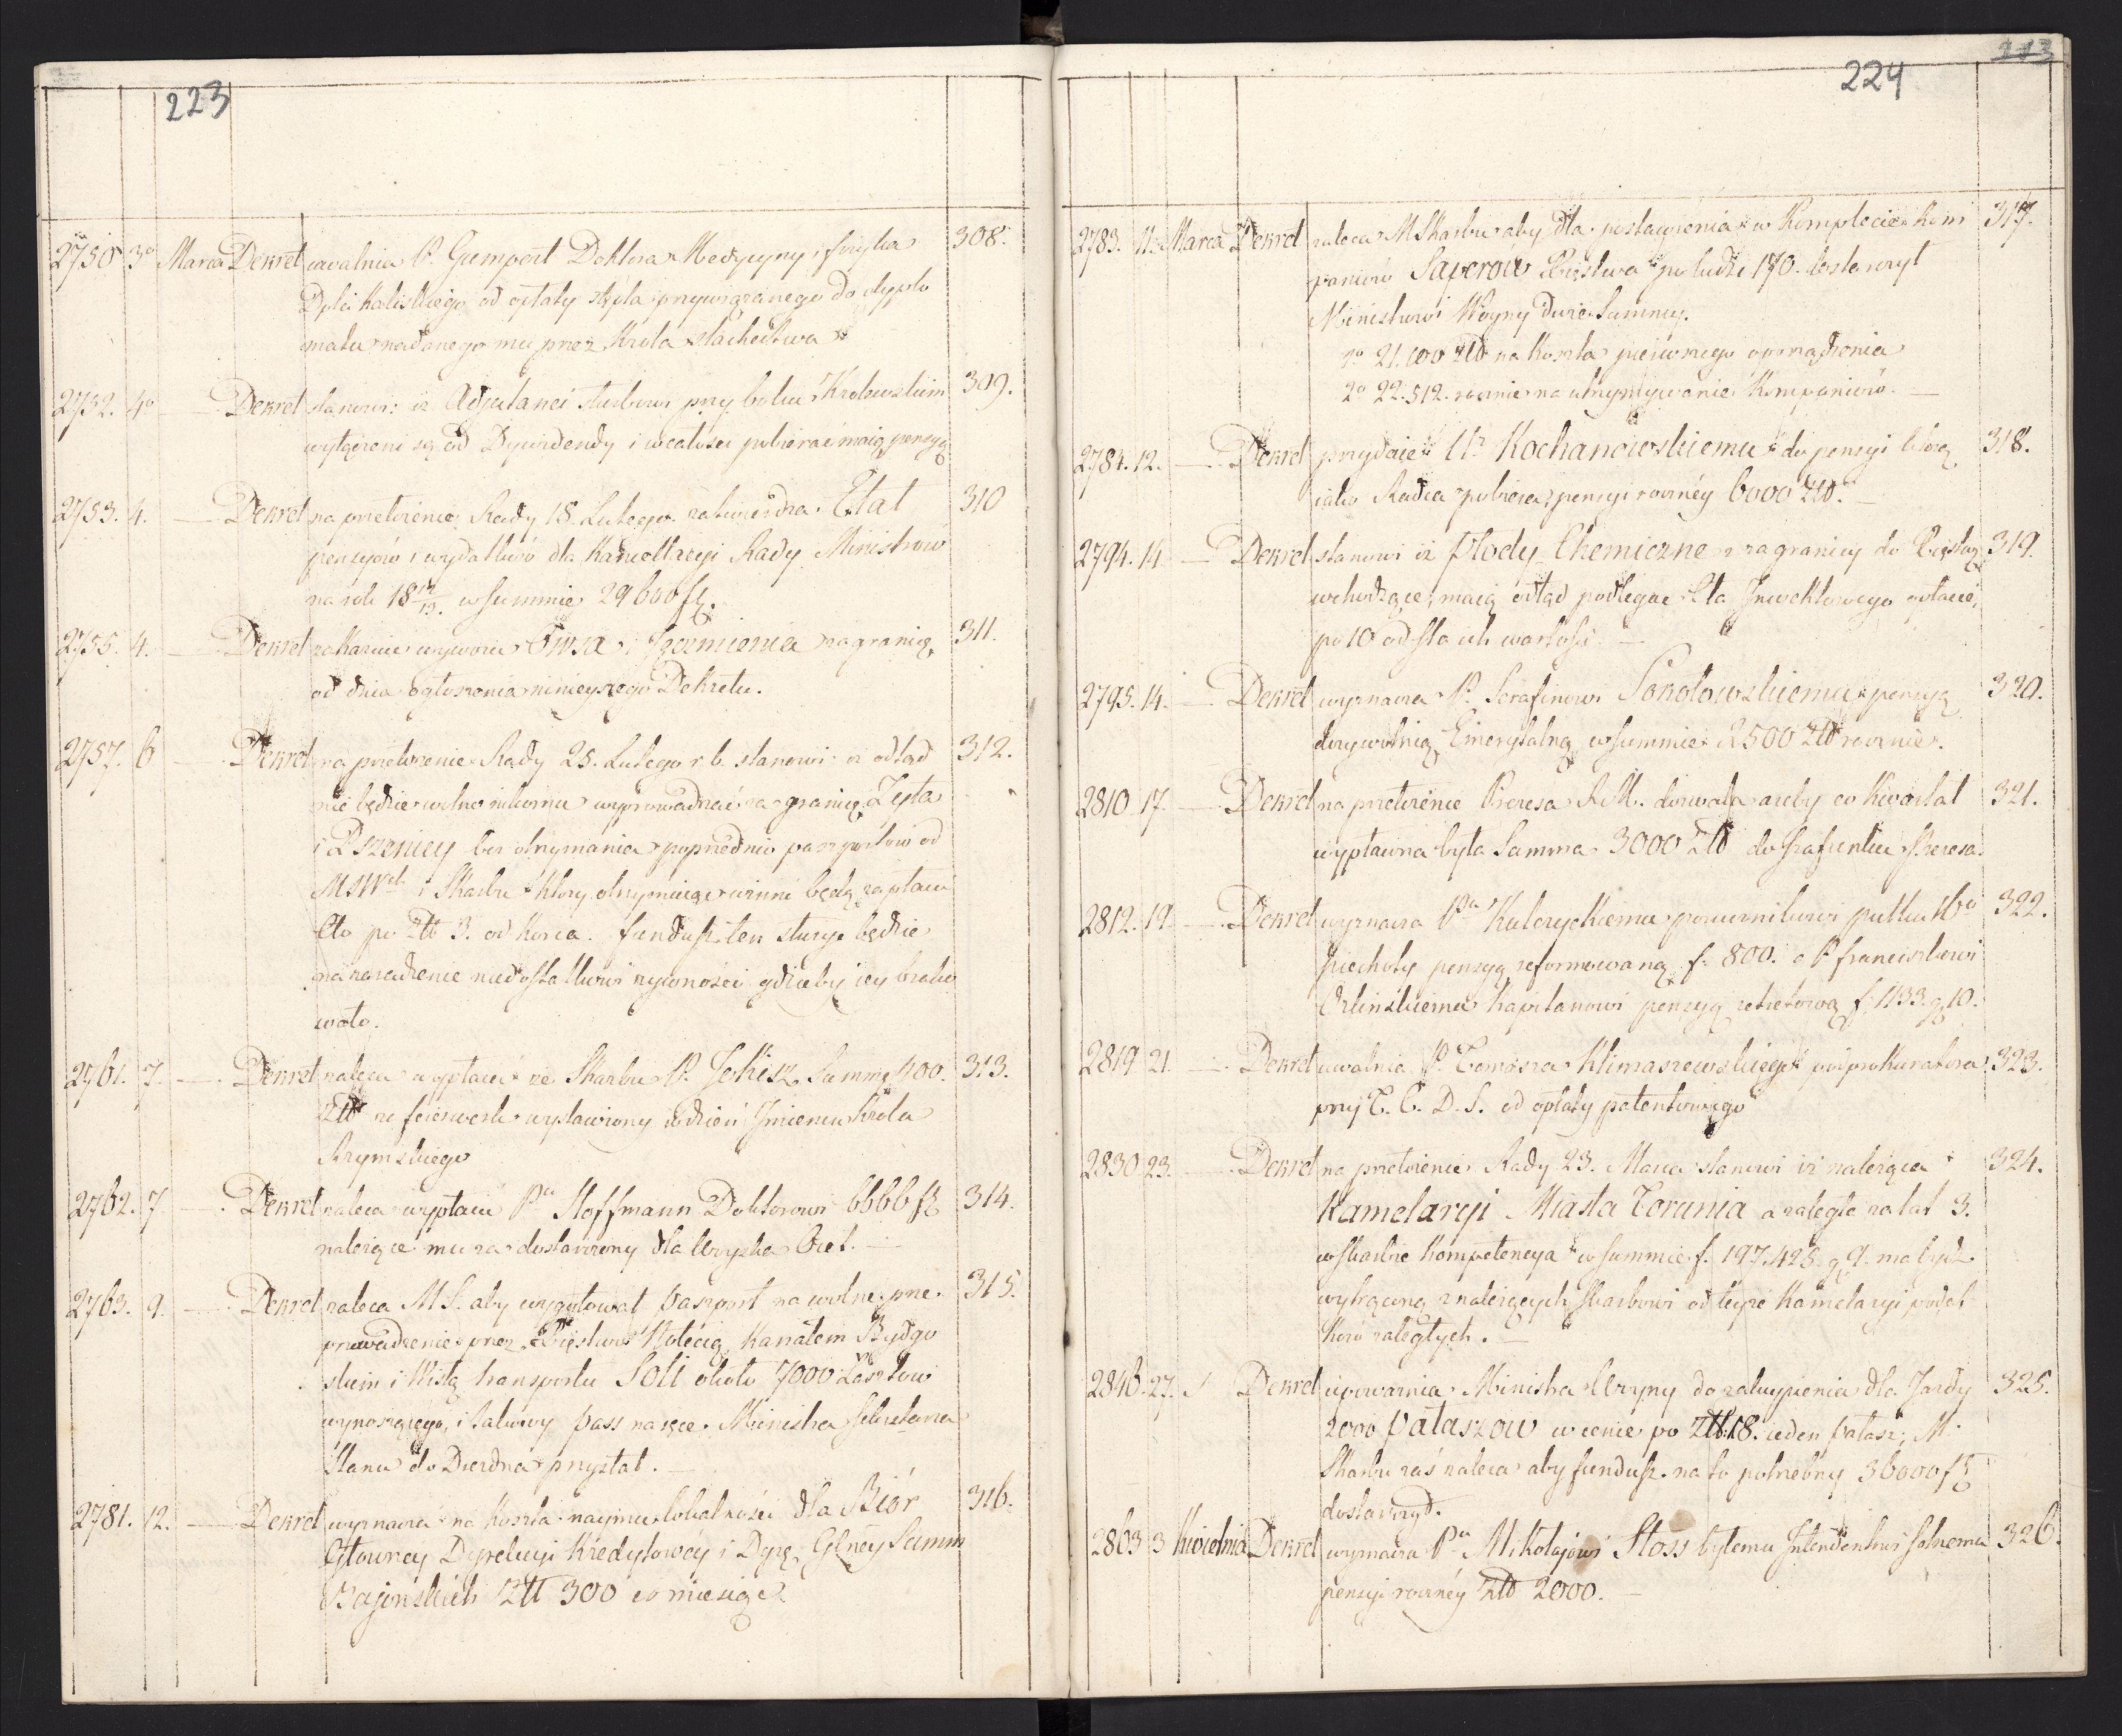 223
2750 3º Marca Dekret uwalnia P. Gumpert Doktora Medycyny i fizyka 308.
Dptu Kaliskiego od opłaty stępla przywiązanego do dyplo
matu nadanego mu przez Króla ślachectwa
2752. 4º — Dekret stanowi iż Adjutanci służbowi przy boku Królewskim 309.
wyłączeni są od Dywidendy i w całości pobierać maią pensyą
2753. 4. — Dekret na przełożenie Rady 18. Lutego zatwierdza Etat 310
pensyów i wydatków dla Kancellaryi Rady Ministrów
na rok 18 12/13. w summie 29606 fl.
2755. 4. — Dekret zakazuie wywozu Owsa i Jęczmienia za granicę, 311.
od dnia ogłoszenia ninieyszego Dekretu.
2757. 6 — Dekret na przełożenie Rady 25. Lutego r. b. stanowi iż odtąd 312.
nie będzie wolno nikomu wyprowadzać za granicę Żyta
i Pszenicy bez otrzymania poprzednio paszportów od
MSWch i Skarbu który otrzymuiąc winni będą zapłacić
Cło po Złł 3. od Korca. fundusz ten służyć będzie
na zaradzenie niedostatkowi żywności gdzieby iey brako
wało.
2761. 7. — Dekret zaleca wypłacić ze Skarbu P. Jokisz Summę 400. 313.
Złł za feierwerk wystawiony w dzień Jmienin Króla
Rzymskiego
2762. 7. — Dekret zaleca wypłacić Pu Hoffmann Doktorowi 6666 fl 314.
należące mu za dostawiony dla Woyska Ocet. —
2763. 9. — Dekret zaleca M S. aby wygotował paszport na wolne prze. 315.
prowadzenie przez Xięstwo Notecią, Kanałem Bydgo
skim i Wisłą transportu Soli około 7000 Łasztow
wynoszącego, i takowy pass na ręce Ministra Sekretarza
Stanu do Drezdna przysłał. —
2781. 12. — Dekret wyznacza na koszta naymu lokalności dla Biór 316.
Głowney Dyrekcyi Kredytowéy i Dyrę. Głney Summ
Bajońskich Złł 300 co miesiąc
224
2783. 11. Marca Dekret zaleca M Skarbu aby dla postawienia w Komplecie Kom 317.
paniów Saperow Xięstwa po ludzi 170. dostarczył
Ministrowi Woyny dwie Summy.
1º 21.600 Złł na Koszta pierwszego oporządzenia
2º 22.512. rocznie na utrzymywanie Kompaniów. —
2784. 12. — Dekret przydaie Ur Kochanowskiemu do pensyi którą 318.
iako Radca pobiera, pensyi roczney 6000 Złł. —
2794. 14 — Dekret stanowi iż płody Chemiczne z zagranicy do Xięstwa 319.
wchodzące, maią odtąd podlegać Cła Inwektowego opłacie,
po 10 od sta ich wartości —
2795. 14. — Dekret wyznacza P. Serafinowi Sokołowskiemu pensyą 320.
dożywotnią Emerytalną w summie 2500 Złł rocznie.
2810 17. — Dekret na przełożenie Prezesa R.M. dozwala ażeby co Kwartał 321.
wypłacana była Summa 3000 Złł do szafunku Prezesa.
2812. 19. — Dekret wyznacza Pu Kuleryckiemu porucznikowi pułku 16º 322.
Piechoty pensyą reformowaną f. 800. a P franciszkowi
Orlinskiemu Kapitanowi pensyą retretową f. 1133. g. 10.
2819 21. — Dekret uwalnia P. Tomasza Klimaszewskiego podprokuratora 323.
przy T. C. D. S. od opłaty patentowego
2830 23. — Dekret na przełożenie Rady 23. Marca stanowi iż należąca 324.
Kamelaryi Miasta Torunia a zaległa za lat 3.
w Skarbie Kompetencya w summie f. 197.425. g 9. ma bydź
wytrąconą z należących Skarbowi od teyże Kamelaryi podat
ków zaległych. —
2846. 27. Dekret upoważnia Ministra Woyny do zakupienia dla Jazdy 325.
2000 pałaszow w cenie po Złł. 18. ieden pałasz, M.
Skarbu zaś zaleca aby fundusz na to potrzebny 36000 fl
dostarczył.
2863 3 Kwietnia Dekret wyznacza Pu Mikołajowi Stoss byłemu Intendentowi Solnemu 326.
pensyi roczney Złł 2000. —